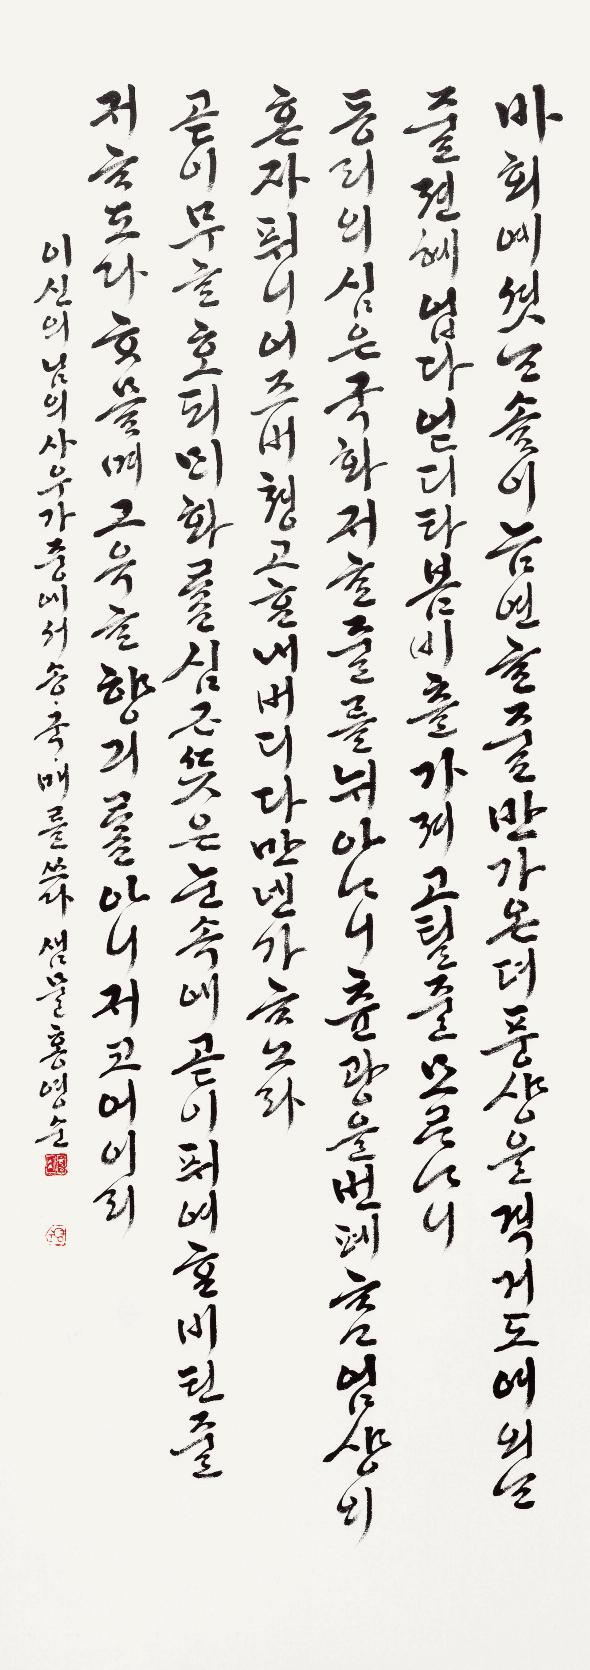 바회예 셧는 솔이 늠연ᄒᆞᆫ 줄 반가온뎌 풍상을 격거도 여외는
줄 젼혜 업다 얻디타 봄비츨 가져 고틸 줄 모르ᄂᆞ니
동리의 심은 국화 귀ᄒᆞᆫ 줄를 뉘 아ᄂᆞ니 츈광을 번폐ᄒᆞ고 엄상의
혼자 퓌니 어즈버 청고ᄒᆞᆫ 내 버디 다만 넨가 ᄒᆞ노라
곧이 무ᄒᆞᆫ호되 ᄆᆡ화를 심근 ᄯᅳᆺ은 눈 속에 곧이 퓌여 ᄒᆞᆫ 비틴 줄
귀ᄒᆞ도다 ᄒᆞ믈며 그윽ᄒᆞᆫ 향긔를 아니 귀코 어이리
이신의 님의 사우가 중에서 송·국·매를 쓰다 샘물 홍영순